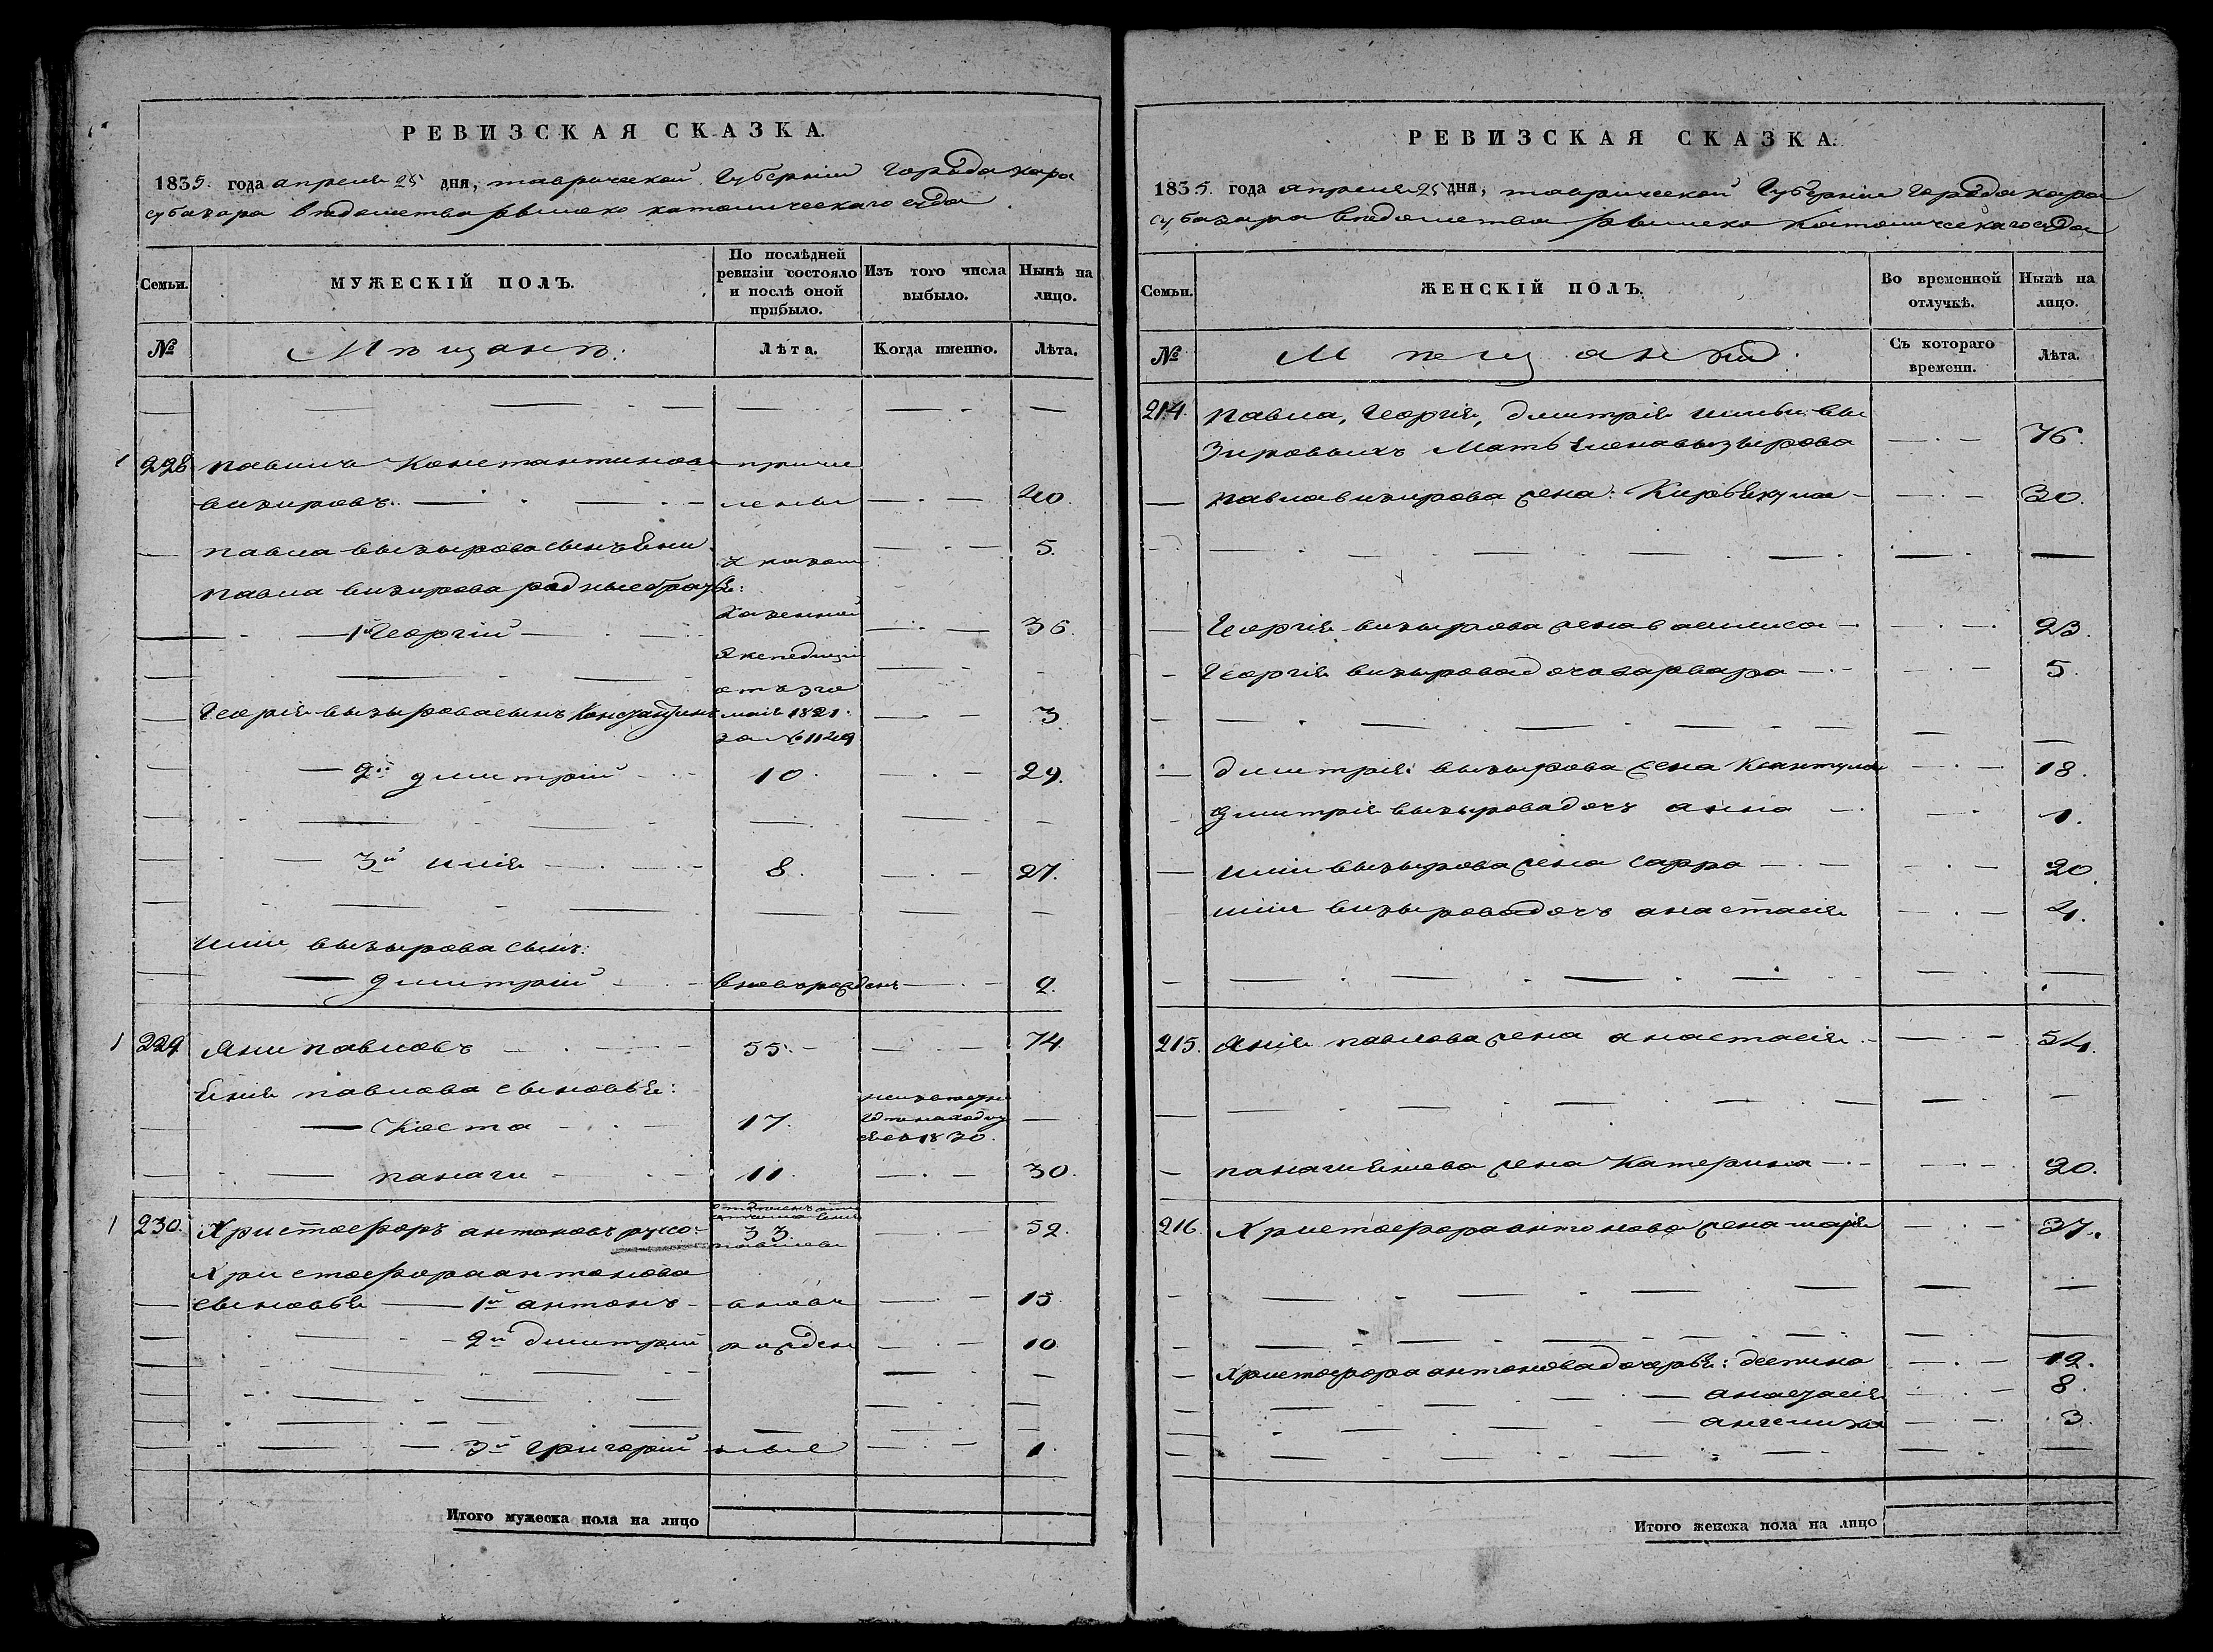 РЕВИЗСКАЯ СКАЗКА.
1835. года апреля 25 дня, таврической Губернии города кара
субазара ведомства римско католическаго суда
Семьи.
МУЖЕСКІЙ ПОЛЪ.
По послѣдней ревизіи состояло и послѣ оной прибыло.
Изъ того числа выбыло.
Нынѣ на лицо.
№
Мещанъ:
Лѣта.
Когда именно.
Лѣта.
228 павелъ Константиновъ причи
визировъ. слены 40.
павла визырова сынъ 5.
указом
павла визирова родные братья:
казенной
1й Георгій 36.
Экспедиции
отъ 3го
Георгія визырова сынъ Константинъ маія 1821. 3
за №
2й дмитрій 10. 29.
3й илія 8. 27.
иліи визырова сынъ:
дмитрій вновь рожденъ 2.
229 Яни павловъ 55. 74
павлова сыновья:
Коста 17. 1830.
панаги 11. 30.
230. Христофоръ антоновъ руссо 33. 52.
Христофора антонова
сыновья 1й антонъ вновь 13
2й дмитрій рожден 10
3й григорій ные 1.
Итого мужеска пола на лицо
РЕВИЗСКАЯ СКАЗКА.
1835. года апреля 25 дня, таврической Губерніи города кара
субазара ведомства римско католическаго суда
Семьи.
ЖЕНСКІЙ ПОЛЪ.
Во временной отлучкѣ.
Нынѣ на лицо.
№
Мещанкъ.
Съ котораго времени.
Лѣта.
214. павла, Георгія, дмитрія ильи ви
зировыхъ Мать Елена визырова 76.
павла визирова жена: 30.
Георгія визырова жена василиса 23.
Георгія визырова дочь варвара 5.
дмитрія визырова жена 18.
дмитрія визырова дочь анна 1.
иліи визырова жена сарра 20.
иліи визырова дочь анастасія 4.
215. Янія павлова жена анастасія 54.
панаги жена Катерина 20.
216. Христофора антонова жена марія 37.
Христофора антонова дочерья: деспина 12.
анастасія 8.
ангелика 3.
Итого женска пола на лицо